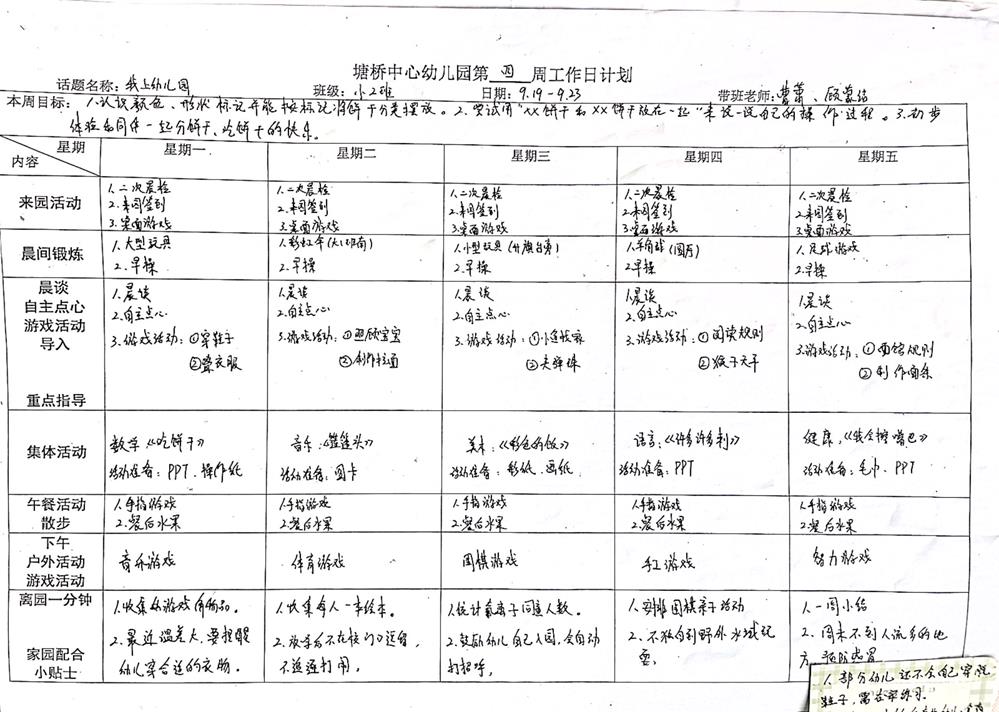 塘桥中心幼儿园第 四 周工作日计划
话题名称：我上幼儿园 班级：小2班 日期：9.19-9.23 带班老师：曹蕾、顾
本周目标：1.认识颜色、形状标记并能按标记将饼干分类摆放。2.尝试用"XX饼干和XX饼干放在一起"来说一说自己的操作过程。3.初步
体验和同伴一起分饼干、吃饼干的快乐。
星期 内容 星期一 星期二 星期三 星期四 星期五
来园活动
1.二次晨检 1.二次晨检 1.二次晨检 1.二次晨检 1.二次晨检
2.来园签到 2.来园签到 2.来园签到 2.来园签到 2.来园签到
3.桌面游戏 3.桌面游戏 3.桌面游戏 3.桌面游戏 3.桌面游戏
晨间锻炼
1.大型玩具 1.彩虹伞 1.小型玩具(升旗台旁) 1.羊角球 1.足球游戏
2.早操 2.早操 2.早操 2.早操 2.早操
晨谈
自主点心
游戏活动
导入
重点指导
1.晨谈 1.晨谈 1.晨谈 1.晨谈 1.晨谈
2.自主点心 2.自主点心 2.自主点心 2.自主点心 2.自主点心
3.游戏活动：①穿鞋子 3.游戏活动：①照顾宝宝 3.游戏活动：① 3.游戏活动：①阅读规则 3.游戏活动：①面馆规则
②叠衣服 ②制作拉面 ②夹弹珠 ②猴子天平 ②制作面条
集体活动
数学《吃饼干》 音乐：《 头》 美术：《彩色的饭》 语言：《许多许多 》 健康：《我会擦嘴巴》
活动准备：PPT、操作纸 活动准备：图卡 活动准备：彩纸、画纸 活动准备：PPT 活动准备：毛巾、PPT
午餐活动
散步
1.手指游戏 1.手指游戏 1.手指游戏 1.手指游戏 1.手指游戏
2.餐后水果 2.餐后水果 2.餐后水果 2.餐后水果 2.餐后水果
下午
户外活动
游戏活动
音乐游戏 体育游戏 围棋游戏 手工游戏 智力游戏
离园一分钟
家园配合
小贴士
1.收集 游戏 物品。 1.收集每人一本绘本。 1.统计 亲子同 人数。 1. 围棋亲子活动 1.一周小结
2.最近温差大，要提醒 2.放学后不在校门口逗留， 2.鼓励幼儿自己入园，会自动 2.不独自到野外水域玩 2.周末不到人流多的地
幼儿穿合适的衣物。 不追逐打闹。 打招呼。 耍。 方
1.部分幼儿还不会自己穿脱
鞋子，需在家练习。